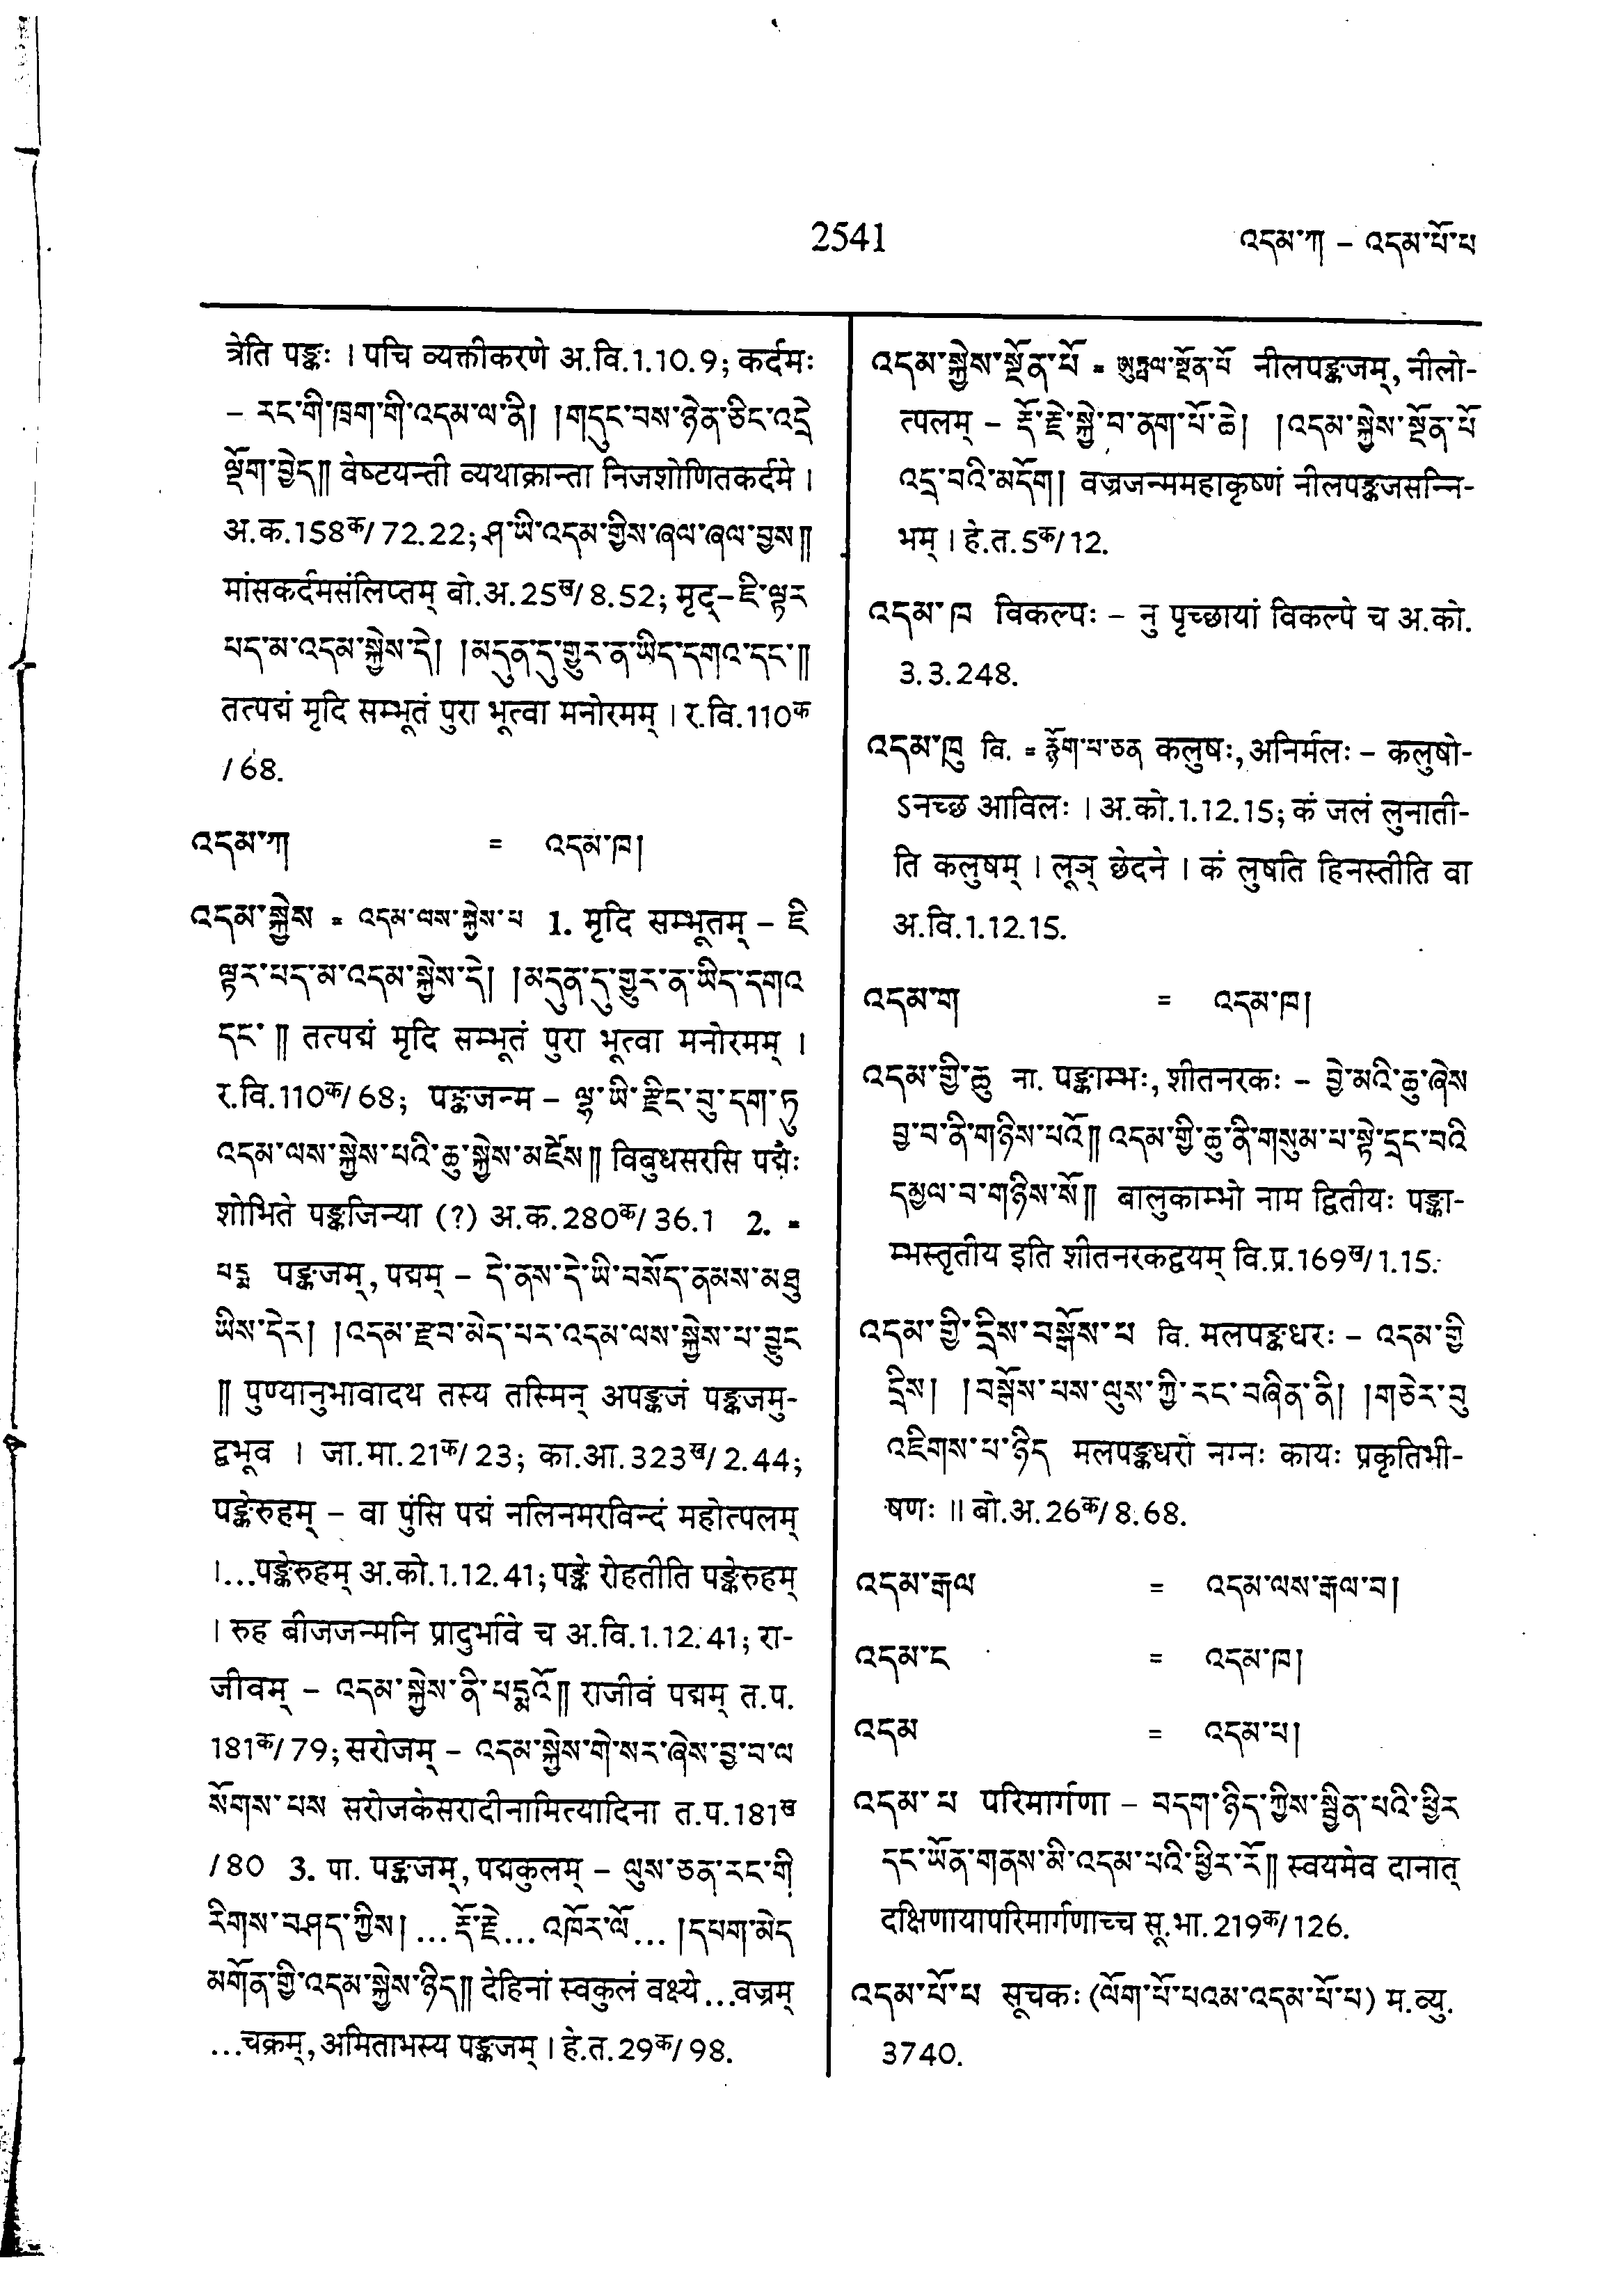 2541
འདམ་ཀ – འདམ་པོ་པ
त्रेति पङ्कः । पचि व्यक्तीकरणे अ.वि.1.10.9; कर्दमः
– རང་གི་ཁྲག་གི་འདམ་ལ་ནི། །གདུང་བས་ཉེན་ཅིང་འདྲེ
ལྡོག་བྱེད༎ वेष्टयन्ती व्यथाक्रान्ता निजशोणितकर्दमे ।
अ.क.158क/72.22; ཤ་ཡི་འདམ་གྱིས་ཞལ་ཞལ་བྱས༎
मांसकर्दमसंलिप्तम् बो.अ.25ख/8.52; मृद्–ཇི་ལྟར
པད་མ་འདམ་སྐྱེས་དེ། །མདུན་དུ་གྱུར་ན་ཡིད་དགའ་དང་༎
तत्पद्मं मृदि सम्भूतं पुरा भूत्वा मनोरमम् । र.वि.110क
/68.
འདམ་ཀ = འདམ་ཁ།
འདམ་སྐྱེས = འདམ་ལས་སྐྱེས་པ 1. मृदि सम्भूतम् – ཇི
ལྟར་པད་མ་འདམ་སྐྱེས་དེ། །མདུན་དུ་གྱུར་ན་ཡིད་དགའ
དང་༎ तत्पद्मं मृदि सम्भूतं पुरा भूत्वा मनोरमम् ।
र.वि.110क/68; पङ्कजन्म – ལྷ་ཡི་རྫིང་བུ་དག་ཏུ
འདམ་ལས་སྐྱེས་པའི་ཆུ་སྐྱེས་མཛེས༎ विबुधसरसि पद्मैः
शोभिते पङ्कजिन्या (?) अ.क.280क/36.1 2. =
པདྨ पङ्कजम्, पद्मम् – དེ་ནས་དེ་ཡི་བསོད་ནམས་མཐུ
ཡིས་དེར། །འདམ་རྫབ་མེད་པར་འདམ་ལས་སྐྱེས་པ་བྱུང
༎ पुण्यानुभावादथ तस्य तस्मिन् अपङ्कजं पङ्कजमु-
द्बभूव । जा.मा.21क/23; का.आ.323ख/2.44;
पङ्केरुहम् – वा पुंसि पद्मं नलिनमरविन्दं महोत्पलम्
।...पङ्केरुहम् अ.को.1.12.41; पङ्के रोहतीति पङ्केरुहम्
। रुह बीजजन्मनि प्रादुर्भावे च अ.वि.1.12.41; रा-
जीवम् – འདམ་སྐྱེས་ནི་པདྨའོ༎ राजीवं पद्मम् त.प.
181क/79; सरोजम् – འདམ་སྐྱེས་གེ་སར་ཞེས་བྱ་བ་ལ
སོགས་པས सरोजकेसरादीनामित्यादिना त.प.181ख
/80 3. पा. पङ्कजम्, पद्मकुलम् – ལུས་ཅན་རང་གི
རིགས་བཤད་ཀྱིས། ... རྡོ་རྗེ... འཁོར་ལོ... །དཔག་མེད
མགོན་གྱི་འདམ་སྐྱེས་ཉིད༎ देहिनां स्वकुलं वक्ष्ये...वज्रम्
...चक्रम्, अमिताभस्य पङ्कजम् । हे.त.29क/98.
འདམ་སྐྱེས་སྔོན་པོ = ཨུཏྤལ་སྔོན་པོ नीलपङ्कजम्, नीलो-
त्पलम् – རྡོ་རྗེ་སྐྱེ་བ་ནག་པོ་ཆེ། །འདམ་སྐྱེས་སྔོན་པོ
འདྲ་བའི་མདོག། वज्रजन्ममहाकृष्णं नीलपङ्कजसन्नि-
भम् । हे.त.5क/12.
འདམ་ཁ विकल्पः – नु पृच्छायां विकल्पे च अ.को.
3.3.248.
འདམ་ཁུ वि. = རྙོག་པ་ཅན कलुषः, अनिर्मलः – कलुषो-
ऽनच्छ आविलः । अ.को.1.12.15; कं जलं लुनाती-
ति कलुषम् । लूञ् छेदने । कं लुषति हिनस्तीति वा
अ.वि.1.12.15.
འདམ་ག = འདམ་ཁ།
འདམ་གྱི་ཆུ ना. पङ्काम्भः, शीतनरकः – བྱེ་མའི་ཆུ་ཞེས
བྱ་བ་ནི་གཉིས་པའོ༎ འདམ་གྱི་ཆུ་ནི་གསུམ་པ་སྟེ་དྲང་བའི
དམྱལ་བ་གཉིས་སོ༎ बालुकाम्भो नाम द्वितीयः पङ्का-
म्भस्तृतीय इति शीतनरकद्वयम् वि.प्र.169ख/1.15.
འདམ་གྱི་དྲིས་བསྒོས་པ वि. मलपङ्कधरः – འདམ་གྱི
དྲིས། །བསྒོས་པས་ལུས་ཀྱི་རང་བཞིན་ནི། །གཅེར་བུ
འཇིགས་པ་ཉིད मलपङ्कधरो नग्नः कायः प्रकृतिभी-
षणः ॥ बो.अ.26क/8.68.
འདམ་རྒལ = འདམ་ལས་རྒལ་བ།
འདམ་ང = འདམ་ཁ།
འདམ = འདམ་པ།
འདམ་པ परिमार्गणा – བདག་ཉིད་ཀྱིས་སྦྱིན་པའི་ཕྱིར
དང་ཡོན་གནས་མི་འདམ་པའི་ཕྱིར་རོ༎ स्वयमेव दानात्
दक्षिणायापरिमार्गणाच्च सू.भा.219क/126.
འདམ་པོ་པ सूचकः (ལོག་པོ་པའམ་འདམ་པོ་པ) म.व्यु.
3740.